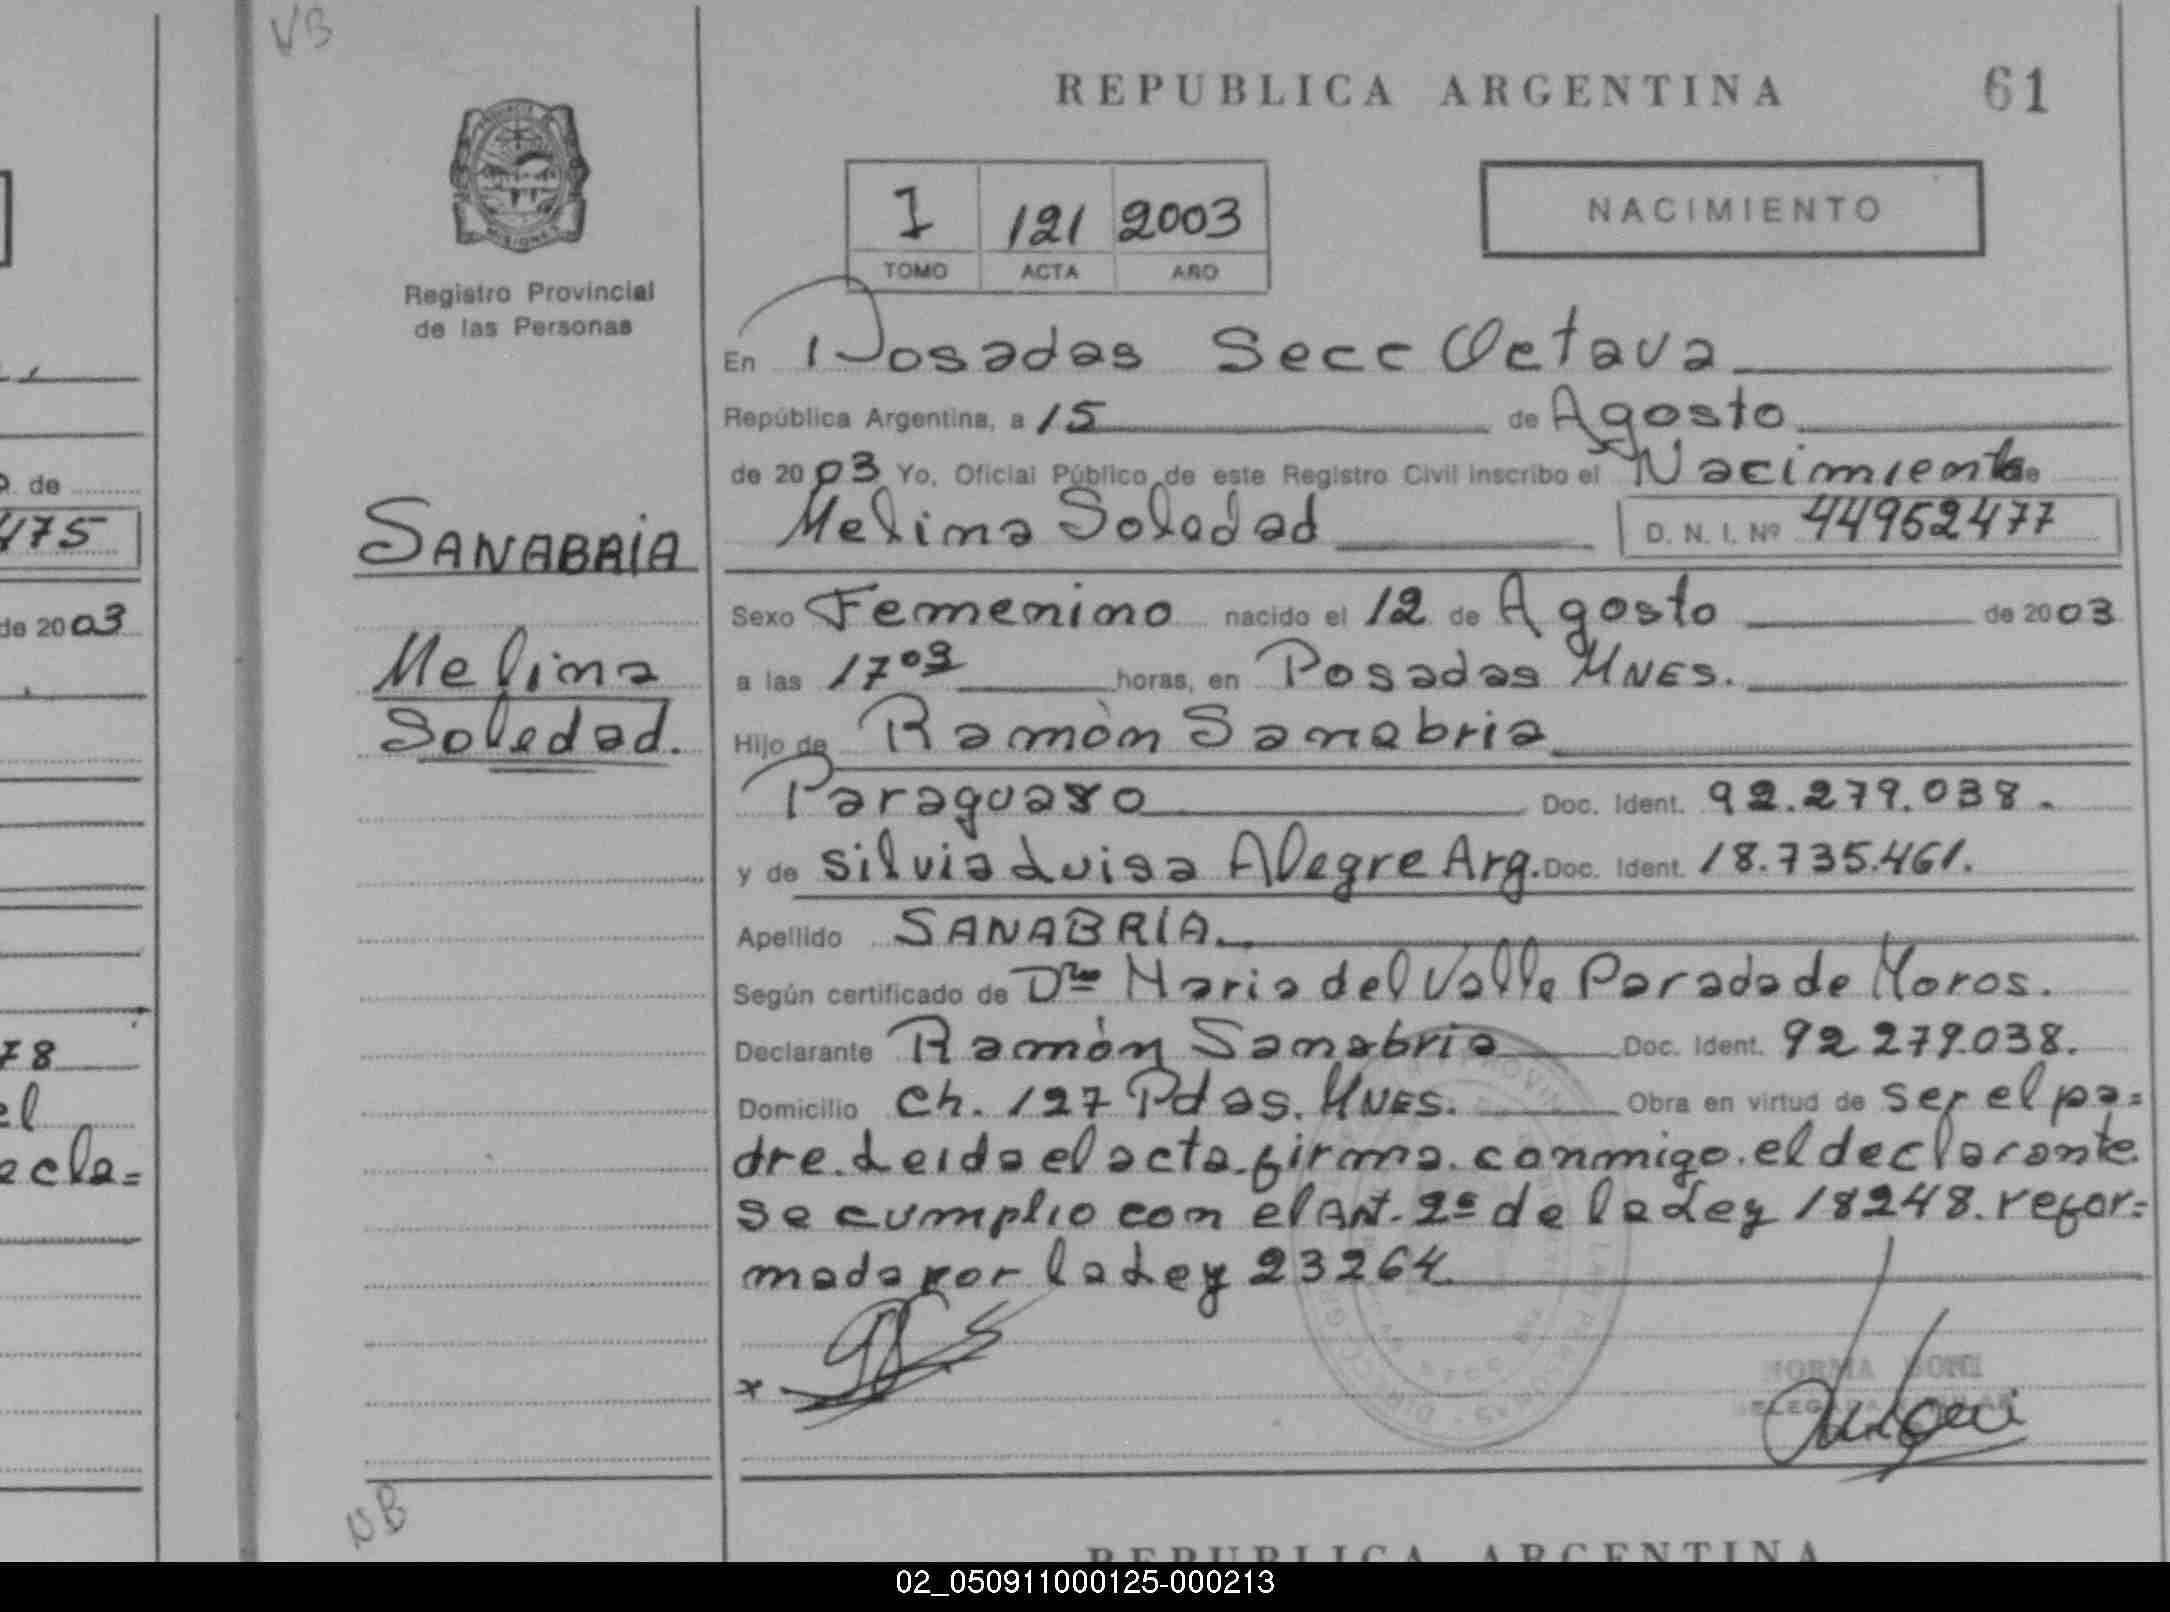 VB
REPUBLICA ARGENTINA 61
PROVINCIA
MISIONES
Registro Provincial
de las Personas
I 121 2003
TOMO ACTA AÑO
NACIMIENTO
En Posadas Secc Octava
República Argentina, a 15 de Agosto
de 2003 Yo, Oficial Público de este Registro Civil inscribo el Nacimiento de
Melina Soledad D. N. I. Nº 44952477
SANABRIA
Melina
Soledad.
Sexo Femenino nacido el 12 de Agosto de 2003
a las 17 03 horas, en Posadas MNES.
Hijo de Ramòn Sanabria
Paraguayo Doc. Ident. 92.279.038.
y de Silvia Luisa Alegre Arg. Doc. Ident. 18.735.461.
Apellido SANABRIA.
Según certificado de Dra Maria del Valle Parada de Moros.
Declarante Ramòn Sanabria Doc. Ident. 92 279.038.
Domicilio Ch. 127 Pdas. MNES. Obra en virtud de ser el pa=
dre. Leida el acta firma conmigo el declarante
se cumplio con el Art. 2º de la Ley 18248. refor=
mada por la Ley 23264
x
NORMA
VB
REPUBLICA ARGENTINA
. de
475
de 2003
78
el
ecla=
02_050911000125-000213